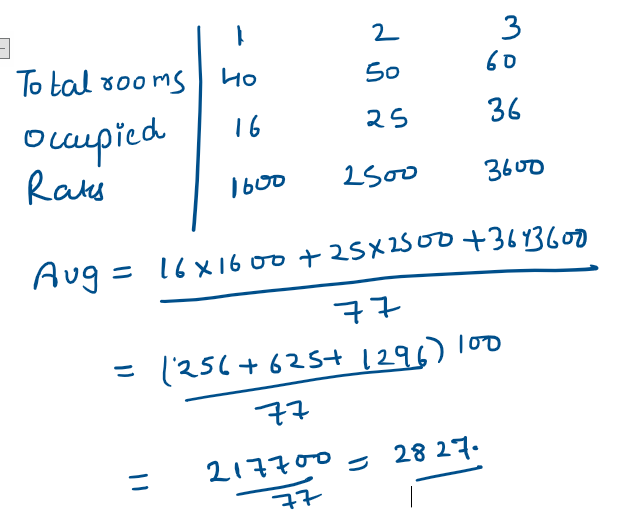 1 2 3
Total rooms 40 50 60
Occupied 16 25 36
Rates 1600 2500 3600
Avg = 16×1600 + 25×2500 + 36×3600
77
= (256 + 625 + 1296) 100
77
= 217700 = 2827.
77